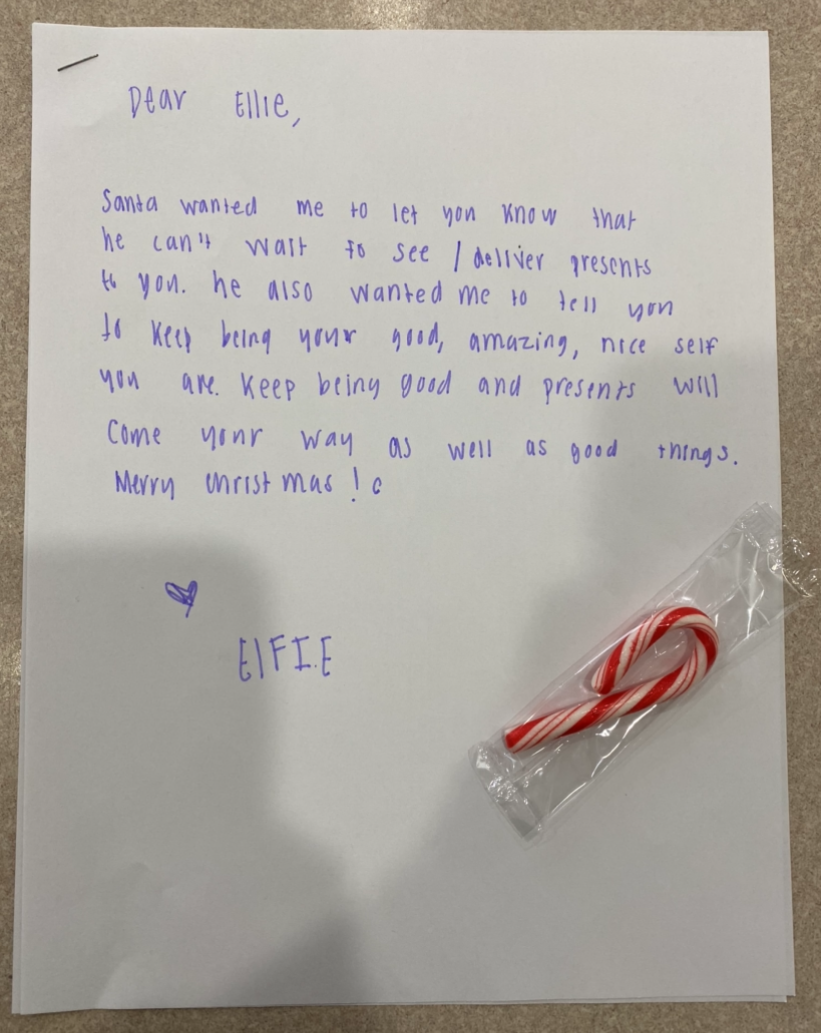 Dear Ellie,
Santa wanted me to let you know that
he can't wait to see / deliver presents
to you. he also wanted me to tell you
to keep being your good, amazing, nice self
you are. Keep being good and presents will
come your way as well as good things.
Merry Christmas ! c
ElFIE